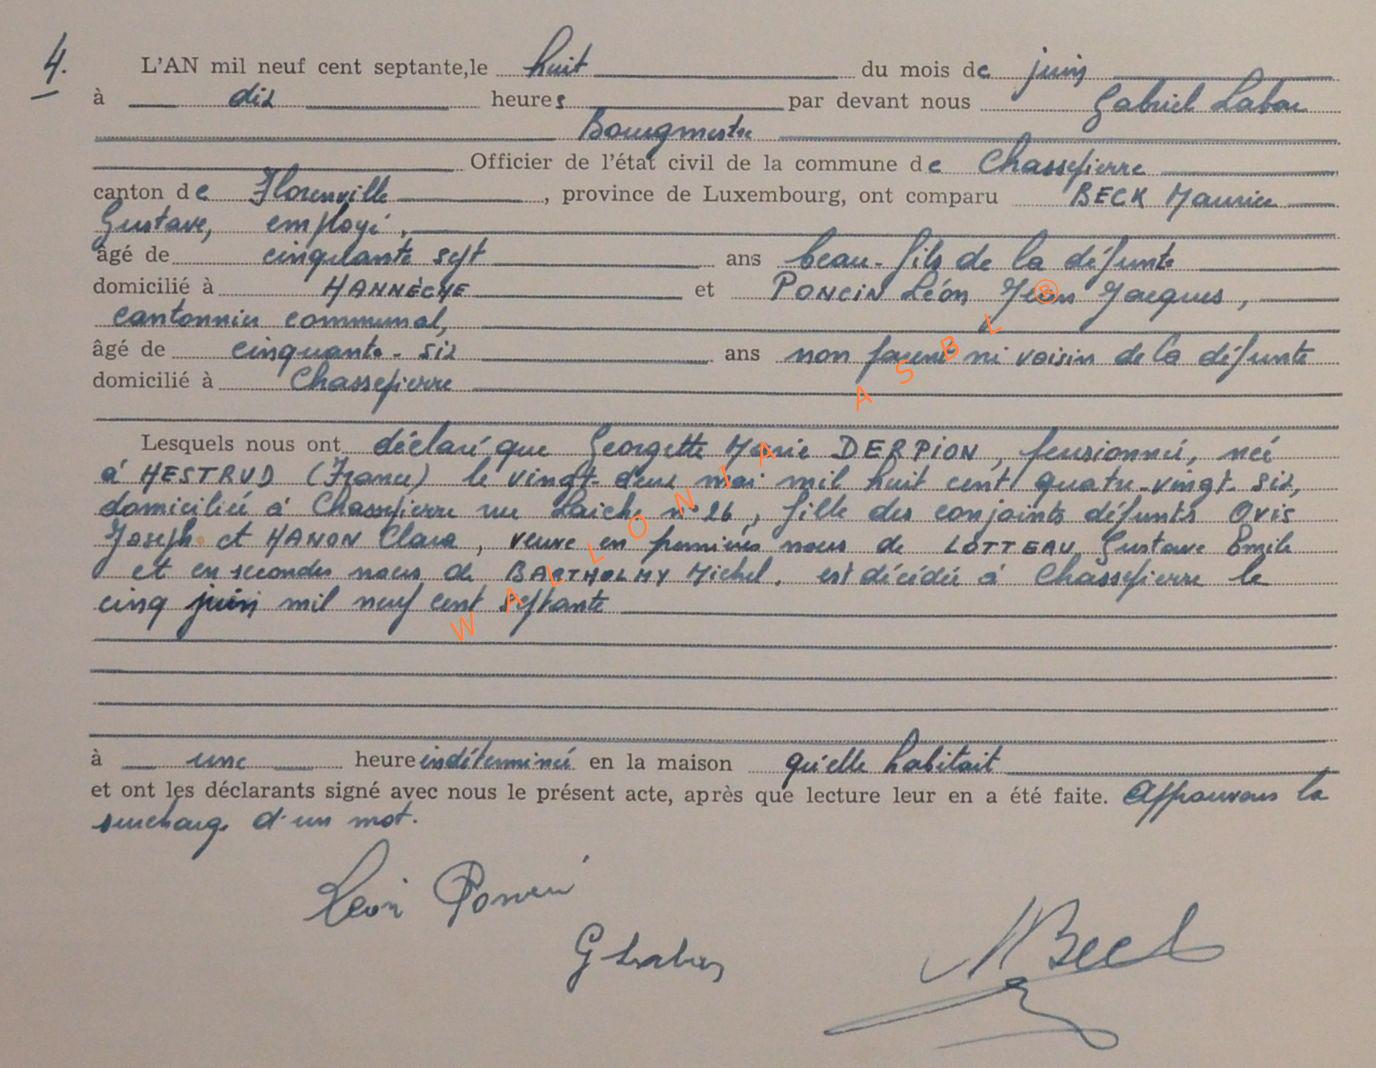 4.
L'AN mil neuf cent septante, le huit du mois de juin
à dix heures par devant nous Gabriel
Bourgmestre
Officier de l'état civil de la commune de Chassepierre
canton de Florenville, province de Luxembourg, ont comparu BECK Maurice
Gustave, employé,
âgé de cinquante sept ans beau-fils de la défunte
domicilié à HANNÈCHE et PONCIN Léon Jean Jacques,
cantonnier communal,
âgé de cinquante-six ans non parent ni voisin de la défunte
domicilié à Chassepierre
Lesquels nous ont déclaré que Georgette Marie DERPION, pensionnée, née
à HESTRUD (France) le vingt-deux mai mil huit cent quatre-vingt-six,
domiciliée à Chassepierre rue Laiche n°26, fille des conjoints défunts Ovis
Joseph et HANON Clara, veuve en premières noces de LOTTEAU Gustave Emile
et en secondes noces de BARTHOLMY Michel. est décédée à Chassepierre le
cinq juin mil neuf cent septante
à une heure indéterminée en la maison qu'elle habitait
et ont les déclarants signé avec nous le présent acte, après que lecture leur en a été faite. Approuvons la
surcharge d'un mot.
Léon Poncin
MBeck
WALLONIA ASBL ®